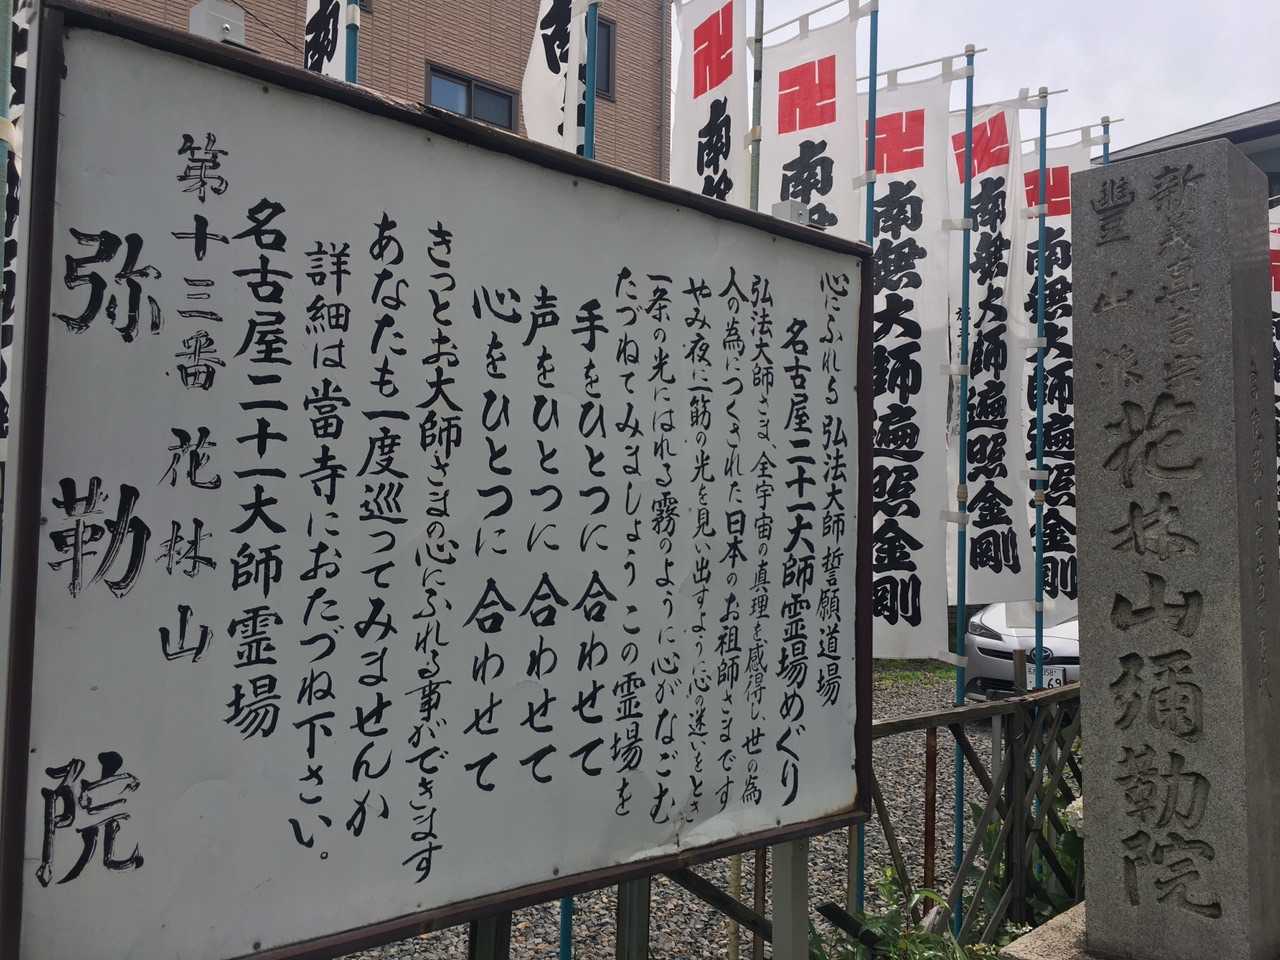 心にふれる 弘法大師誓願道場
名古屋二十一大師霊場めぐり
弘法大師さま、全宇宙の真理を感得し、世の為
人の為につくされた日本のお祖師さまです
やみ夜に一筋の光を見い出すように心の迷いをとき
一条の光にはれる霧のように心がなごむ
たづねてみましょうこの霊場を
手をひとつに合わせて
声をひとつに合わせて
心をひとつに合わせて
きっとお大師さまの心にふれる事ができます
あなたも一度巡ってみませんか
詳細は當寺におたづね下さい。
名古屋二十一大師霊場
第十三番 花林山
弥勒院
南
南
卍南無
卍南無
卍南無大師遍照金剛
卍南無大師遍照金剛
卍南無大師遍照金剛
新義真言宗
豊山派
花林山彌勒院
69